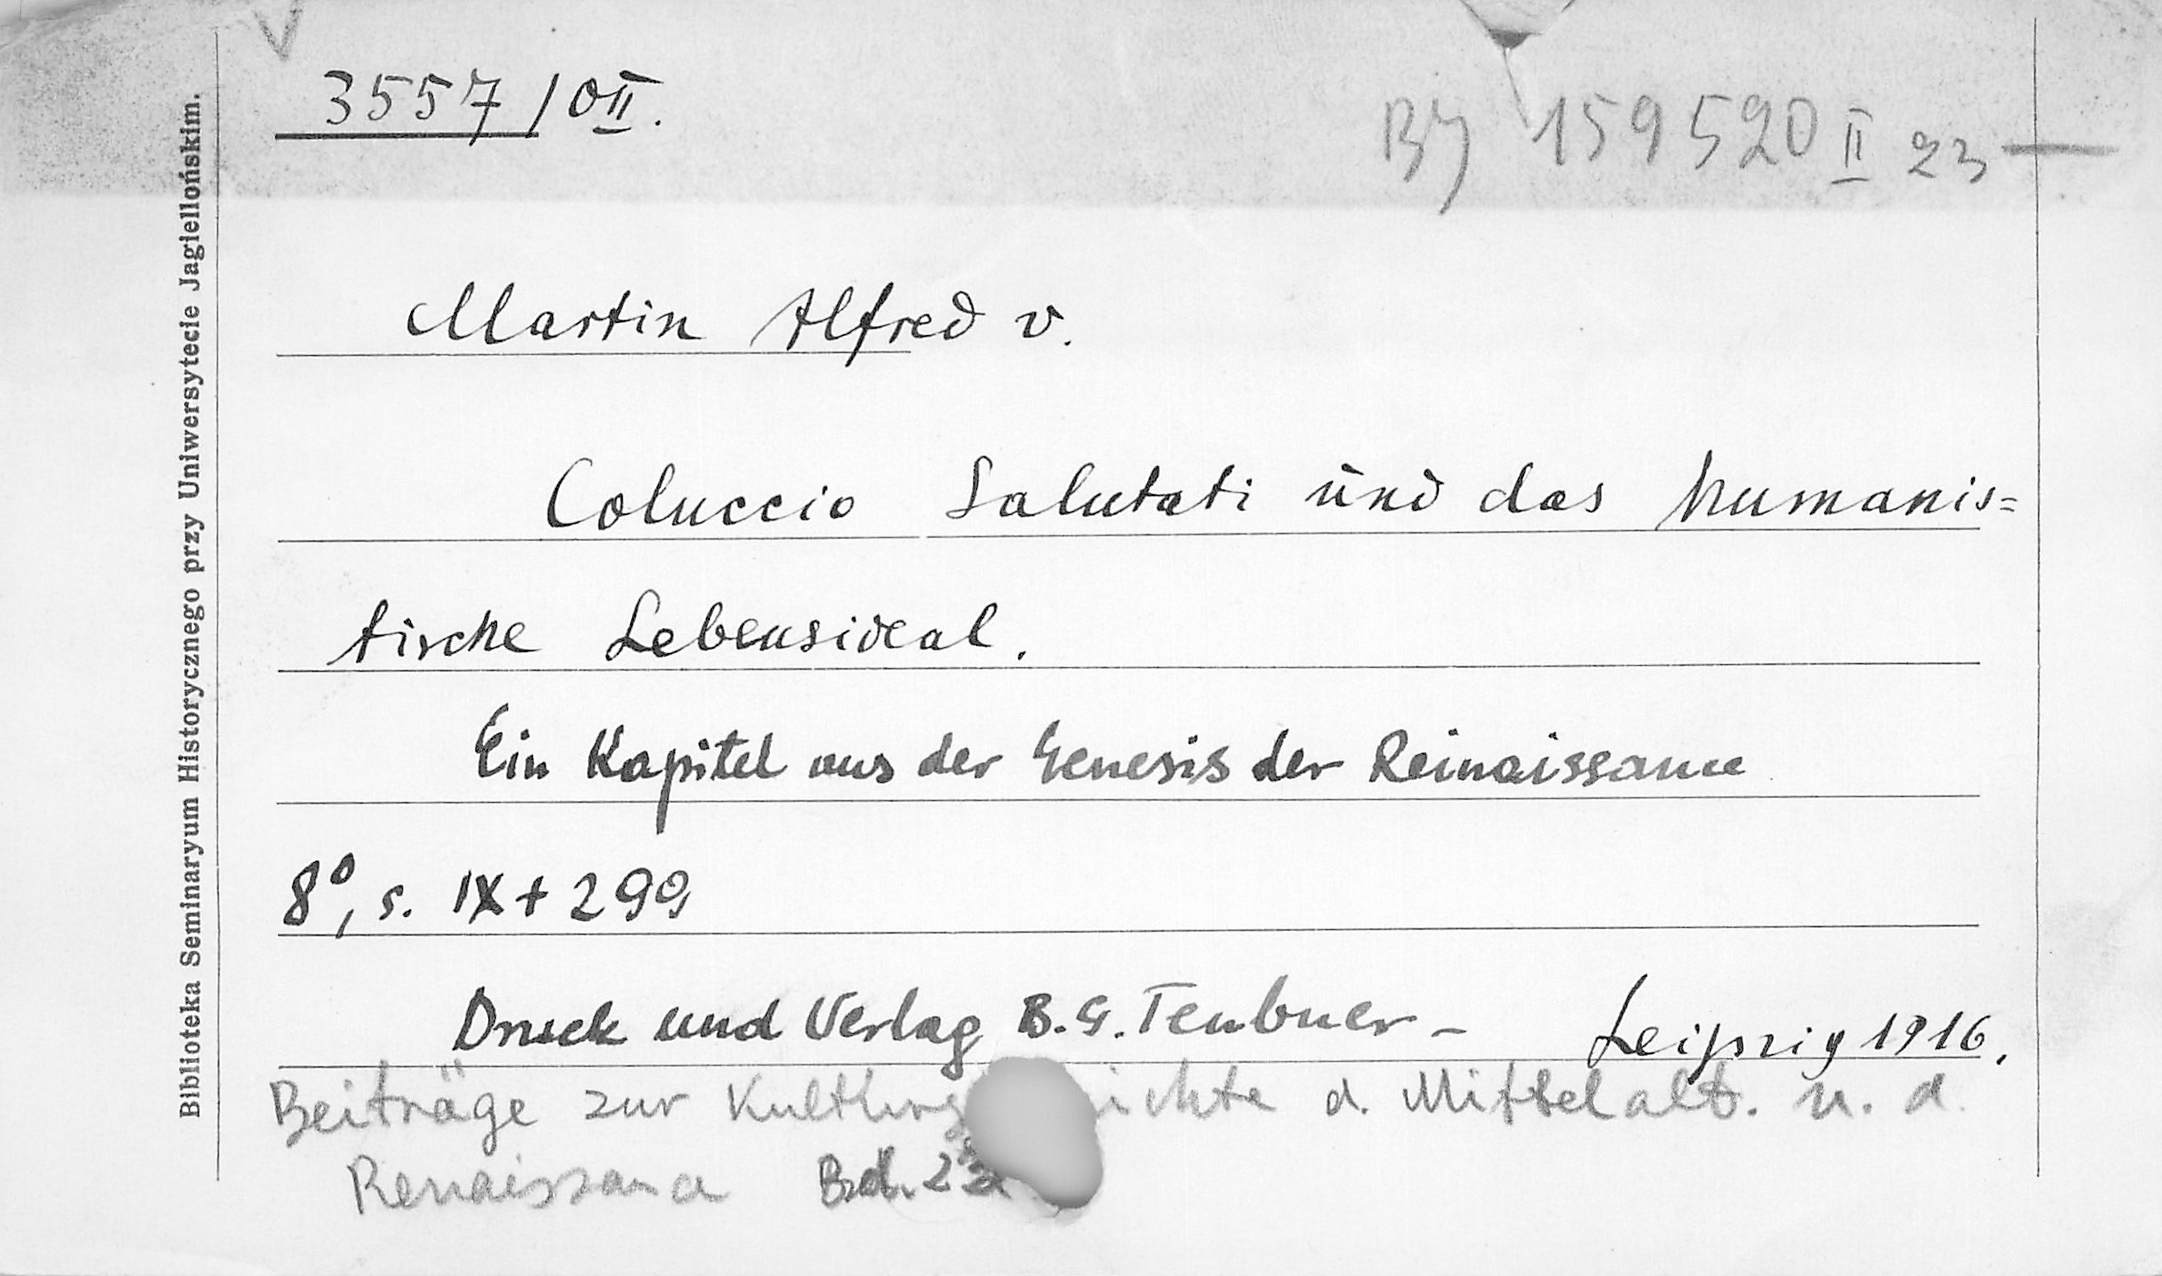 Biblioteka Seminaryum Historycznego przy Uniwersytecie Jagiellońskim.
3557/OII.
BJ 159520 II 23 —
Martin Alfred v.
Coluccio Salutati und das humanis=
tische Lebensideal.
Ein Kapitel aus der Genesis der Reinaissance
8°, s. IX + 299
Druck und Verlag B. G. Teubner - Leipzig 1916.
Beiträge zur d. Mittelalt. u. d.
Renaissance Bd. 23